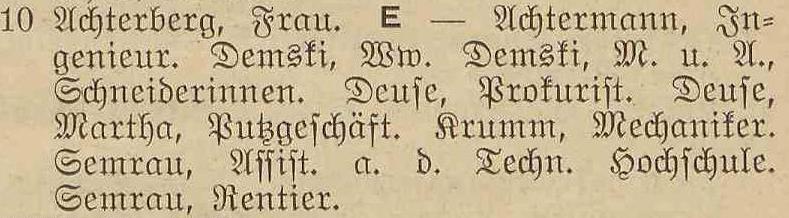 10 Achterberg, Frau. E — Achtermann, In-
genieur. Demski, Ww. Demski, M. u. A.,
Schneiderinnen. Deuse, Prokurist. Deuse,
Martha, Putzgeschäft. Krumm, Mechaniker.
Semrau, Assist. a. d. Techn. Hochschule.
Semrau, Rentier.